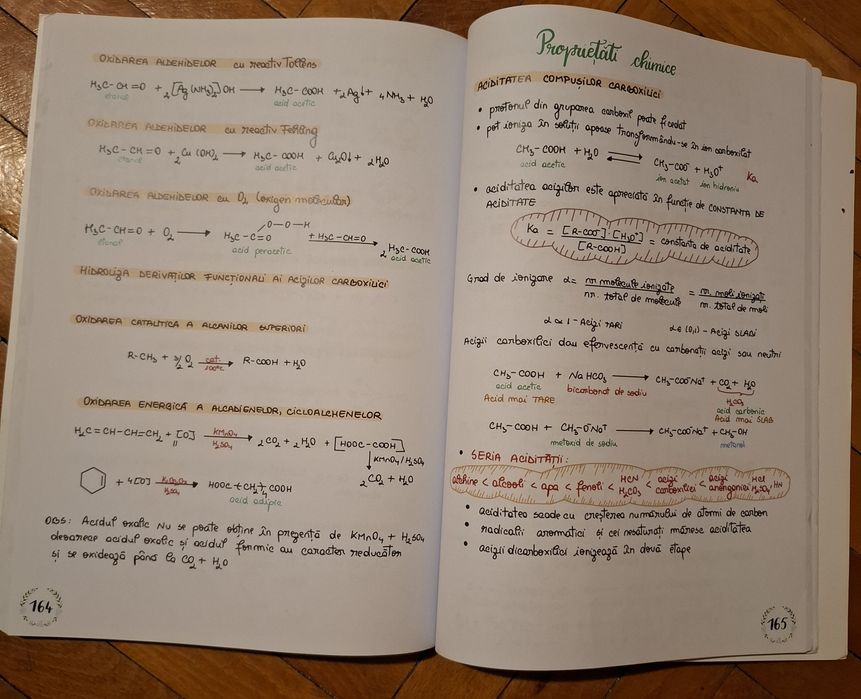 OXIDAREA ALDEHIDELOR cu reactiv Tollens
H₃C-CH=O + 2[Ag(NH₃)₂]OH → H₃C-COOH + 2Ag↓ + 4NH₃ + H₂O
etanal acid acetic
OXIDAREA ALDEHIDELOR cu reactiv Fehling
H₃C-CH=O + 2Cu(OH)₂ → H₃C-COOH + Cu₂O↓ + 2H₂O
etanal acid acetic
OXIDAREA ALDEHIDELOR cu O₂ (oxigen molecular)
O-O-H
H₃C-CH=O + O₂ → H₃C-C=O + H₃C-CH=O → 2H₃C-COOH
etanal acid peracetic acid acetic
HIDROLIZA DERIVAȚILOR FUNCȚIONALI AI ACIZILOR CARBOXILICI
OXIDAREA CATALITICĂ A ALCANILOR SUPERIORI
R-CH₃ + 3/2 O₂ cat. 100°C → R-COOH + H₂O
OXIDAREA ENERGICĂ A ALCADIENELOR, CICLOALCHENELOR
H₂C=CH-CH=CH₂ + [O] KMnO₄ H₂SO₄ → 2CO₂ + 2H₂O + [HOOC-COOH]
11
↓ KMnO₄/H₂SO₄
2CO₂ + H₂O
+ 4[O] K₂Cr₂O₇ H₂SO₄ → HOOC-(CH₂)₄-COOH
acid adipic
OBS: Acidul oxalic NU se poate obține în prezență de KMnO₄ + H₂SO₄
deoarece acidul oxalic și acidul formic au caracter reducător
și se oxidează până la CO₂ + H₂O
164
Proprietăți chimice
ACIDITATEA COMPUȘILOR CARBOXILICI
• protonul din gruparea carboxil poate fi cedat
• pot ioniza în soluții apoase transformându-se în ion carboxilat
CH₃-COOH + H₂O ⇌ CH₃-COO⁻ + H₃O⁺ Ka
acid acetic ion acetat ion hidroniu
• aciditatea acizilor este apreciată în funcție de CONSTANTA DE
ACIDITATE
Ka = [R-COO⁻]·[H₃O⁺] / [R-COOH] = constanta de aciditate
Grad de ionizare α = nr. molecule ionizate / nr. total de molecule = nr. moli ionizați / nr. total de moli
α ≃ 1 - Acizi TARI α ∈ (0,1) - Acizi SLABI
Acizii carboxilici dau efervescență cu carbonații acizi sau neutri
CH₃-COOH + NaHCO₃ → CH₃-COO⁻Na⁺ + CO₂ + H₂O
acid acetic bicarbonat de sodiu H₂CO₃
Acid mai TARE acid carbonic
Acid mai SLAB
CH₃-COOH + CH₃-O⁻Na⁺ → CH₃-COO⁻Na⁺ + CH₃-OH
metoxid de sodiu metanol
• SERIA ACIDITĂȚII:
alchine < alcooli < apa < fenoli < HCN H₂CO₃ < acizi carboxilici < acizi anorganici HCl H₂SO₄
• aciditatea scade cu creșterea numărului de atomi de carbon
• radicalii aromatici și cei nesaturați măresc aciditatea
• acizii dicarboxilici ionizează în două etape
165